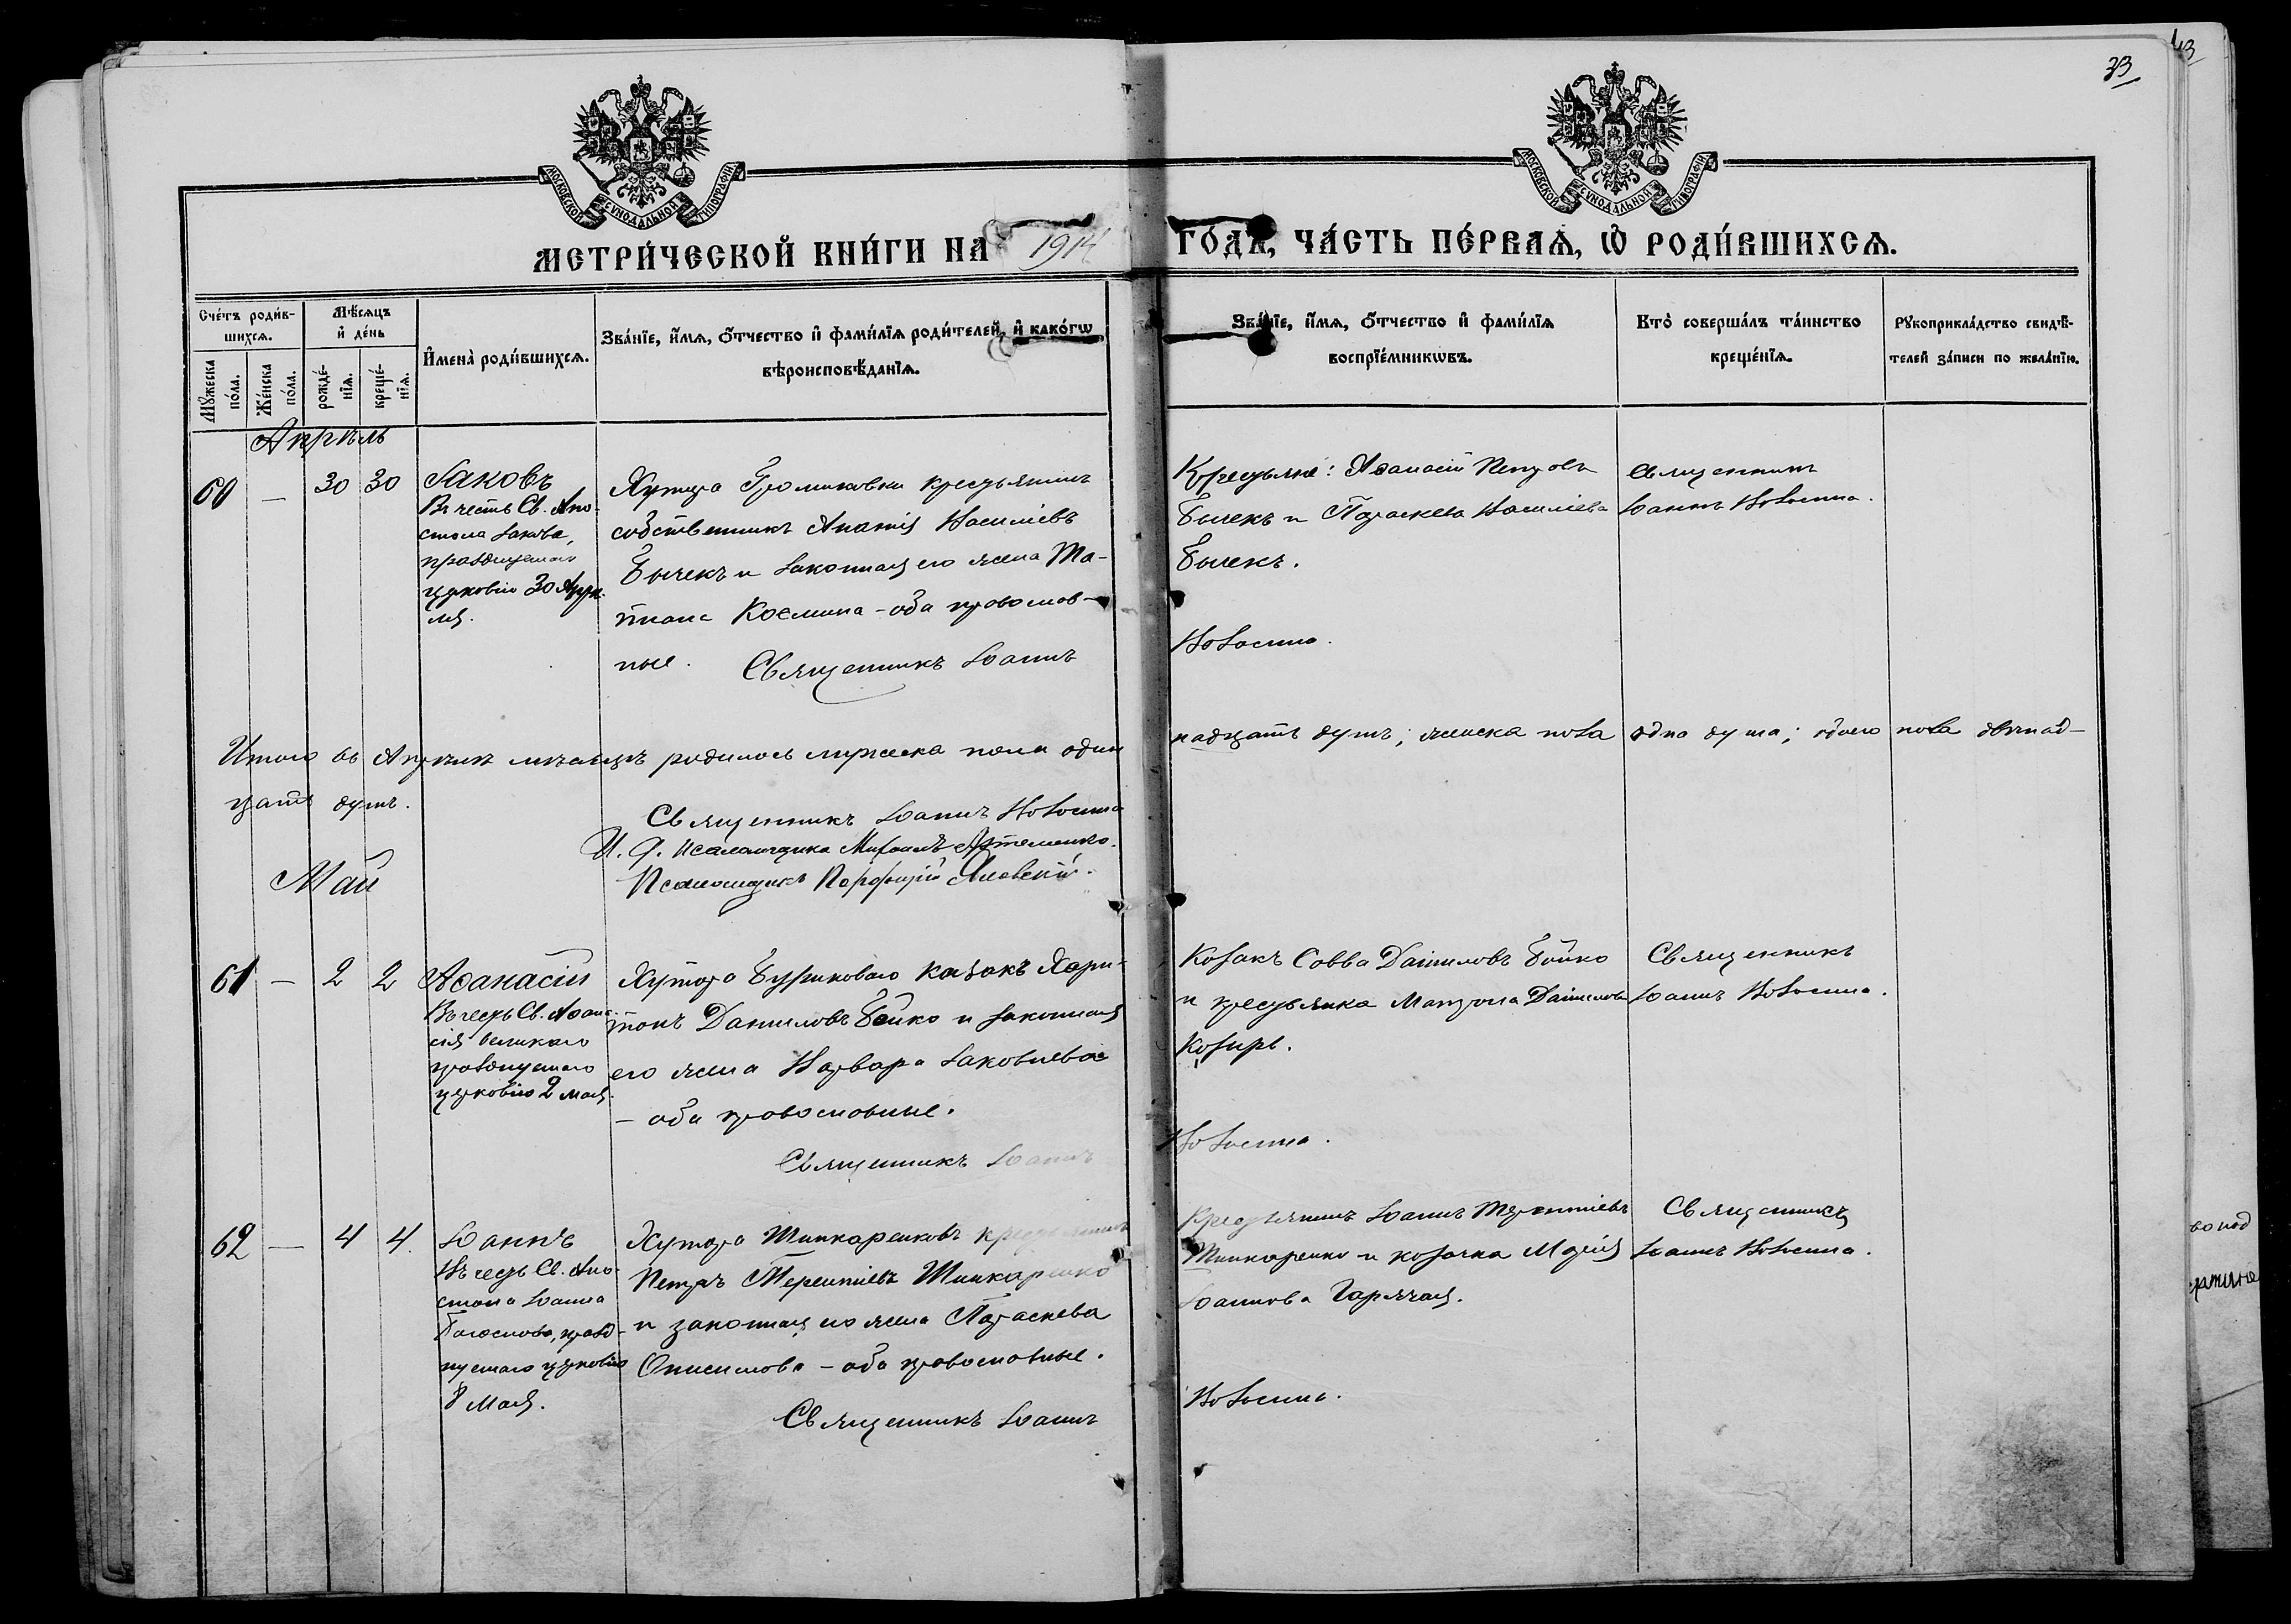 33
МОСКОВСКОЙ СѴНОДАЛЬНОЙ ТИПОГРАФІИ
МОСКОВСКОЙ СѴНОДАЛЬНОЙ ТИПОГРАФІИ
МЕТРИ́ЧЕСКОЙ КНИ́ГИ НА 1914 ГО́ДЪ, ЧА́СТЬ ПЕ́РВАѦ, Ѡ РОДИ́ВШИХСѦ.
Сче́тъ роди́в-
шихсѧ.
Мꙋжеска
по́ла.
Же́нска
по́ла.
Мѣ́сѧцъ
и де́нь
рожде́-
нїѧ.
креще́-
нїѧ.
И҆мена̀ роди́вшихсѧ.
Зва́нїе, и҆́мѧ, о҆́тчество и҆ фами́лїѧ роди́телей, и҆ како́гѡ
вѣроисповѣ́данїѧ.
Зва́нїе, и҆́мѧ, о҆́тчество и҆ фами́лїѧ
воспрїе́мникѡвъ.
Кто̀ соверша́лъ та́инство
креще́нїѧ.
Рꙋкоприкла́дство свидѣ́-
телей за́писи по жела́нїю.
Апрѣль
60 — 30 30
Іаковъ
Въ честь Св. Апо-
стола Іакова,
празднуемаго
церковію 30 Апрѣ-
ля.
Хутора Громиковки крестьянинъ
собственникъ Ананія Василіевъ
Бычекъ и законная его жена Та-
тіана Космина - оба православ-
ные. Священникъ Іоаннъ
Новосина.
Крестьяне: Аѳанасій Петровъ
Бычекъ и Параскева Василіева
Бычекъ.
Священникъ
Іоаннъ Новосина.
Итого въ Апрѣлѣ мѣсяцѣ родилось мужеска пола один
надцать душъ; женска пола одна душа; обоего пола двѣнад-
цать душъ.
Священникъ Іоаннъ Новосина
И. д. псаломщика Михаилъ Артеменко.
Псаломщикъ Порфирій Яновскій.
Май
61 — 2 2
Аѳанасій
Въ честь Св. Аѳана-
сія Великаго
празднуемаго
церковію 2 мая.
Хутора Буримоваго казакъ Хари-
тонъ Даниловъ Бойко и законная
его жена Варвара Іаковлева
- оба православные.
Священникъ Іоаннъ
Новосина.
Козакъ Савва Даниловъ Бойко
и крестьянка Матрона Данилова
Козырь.
Священникъ
Іоаннъ Новосина.
62 — 4 4.
Іоаннъ
Въ честь Св. Апо-
стола Іоанна
Богослова, празд-
нуемаго церковію
8 Мая.
Хутора Шинкаренковъ крестьянинъ
Петръ Терентіевъ Шинкаренко
и законная его жена Параскева
Онисимова - оба православные.
Священникъ Іоаннъ
Новосина.
Крестьянинъ Іоаннъ Терентіевъ
Шинкаренко и козачка Марія
Іоаннова Гарячая.
Священникъ
Іоаннъ Новосина.